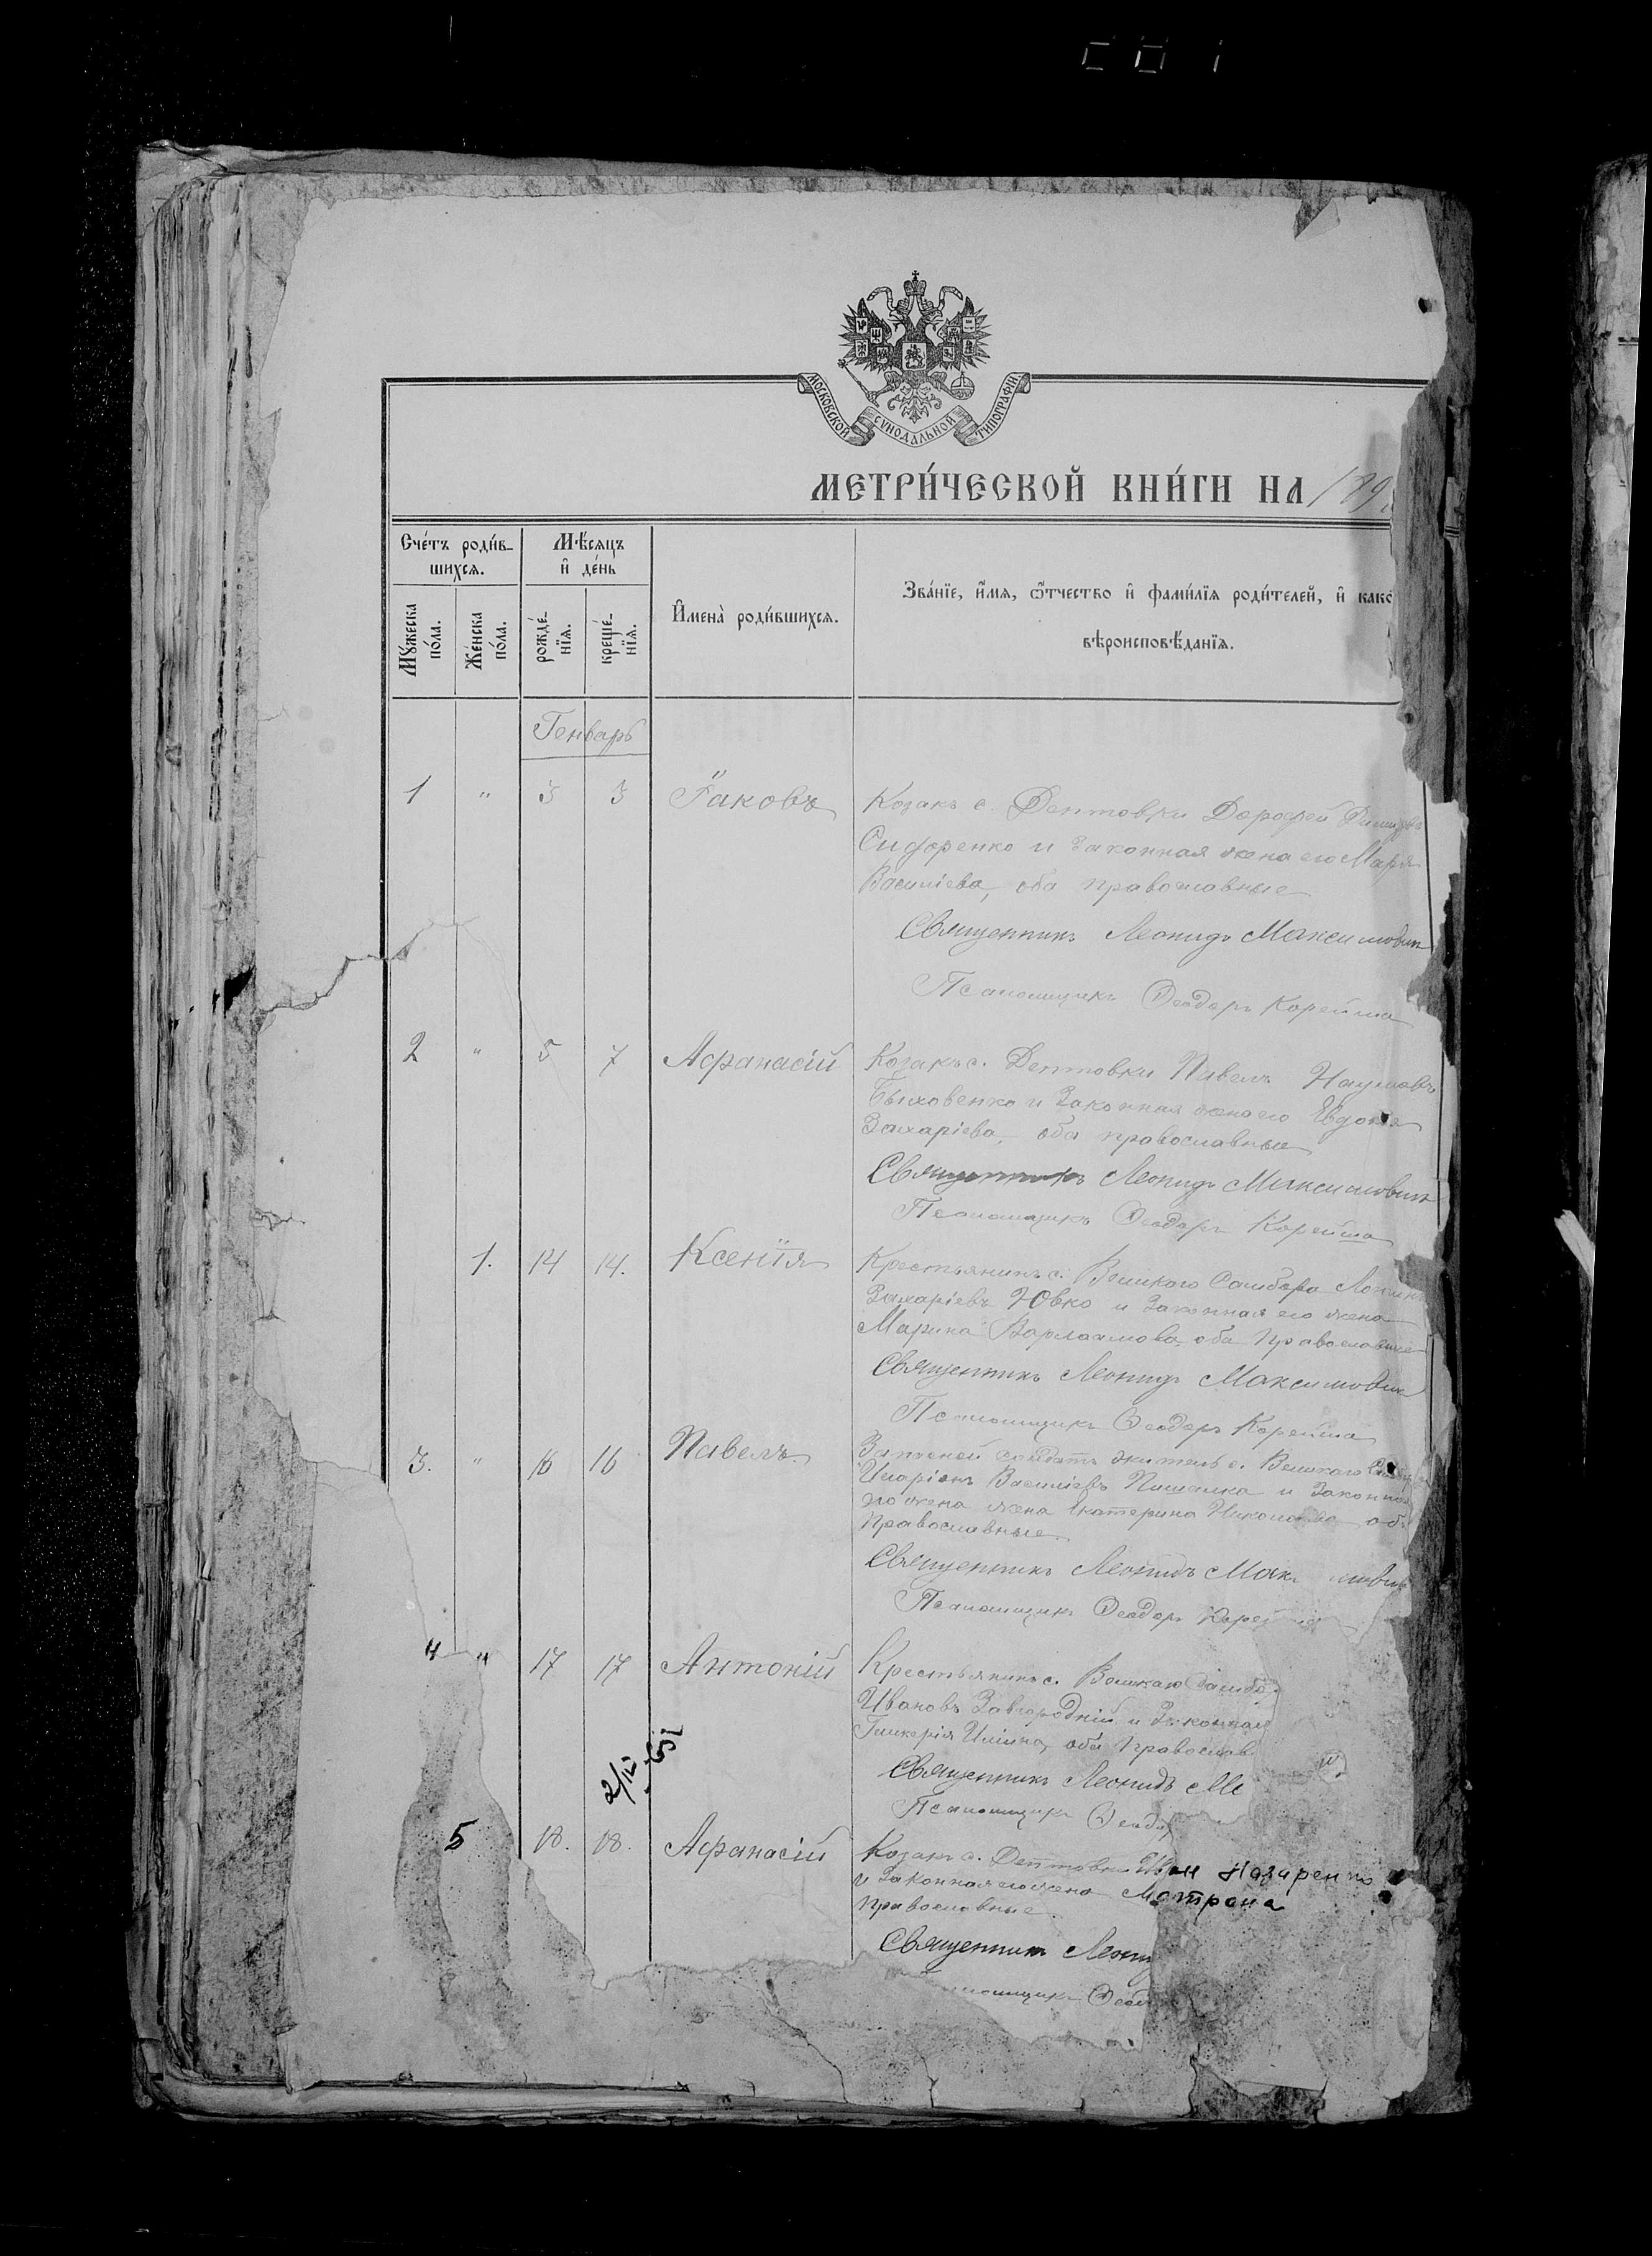 МОСКОВСКОЙ СѴНОДАЛЬНОЙ ТИПОГРАФІИ.
МЕТРИ́ЧЕСКОЙ КНИ́ГИ НА 189
Сче́тъ роди́в-
шихсѧ.
Мѣ́сѧцъ
и҆ де́нь
Мꙋ́жеска
по́ла.
Же́нска
по́ла.
рожде́-
нїѧ.
креще́-
нїѧ.
И҆мена̀ роди́вшихсѧ.
Зва́нїе, и҆́мѧ, ѻ҆́тчество и҆ фами́лїѧ роди́телей, и҆ како
вѣроисповѣ́данїѧ.
Генварь
1 " 3 3 Іаковъ Козакъ с. Дептовки Дорофей
Сидоренко и законная жена его Марія
Василіева, оба православные
Священникъ Леонидъ Максимович
Псаломщикъ Ѳеодоръ Корейша
2 " 5 7 Афанасій Козакъ с. Дептовки Павелъ Наумовъ
Быховенко и законная жена его Евдокія
Захаріева, оба православные
Священникъ Леонидъ Максимович
Псаломщикъ Ѳеодоръ Корейша
1. 14 14. Ксенія Крестьянинъ с. Великаго Самбора
Захаріевъ Ювко и законная его жена
Марина Варлаамова, оба православные
Священникъ Леонидъ Максимович
Псаломщикъ Ѳеодоръ Корейша
3. " 16 16 Павелъ. Запасной солдатъ житель с. Великаго
Иларіонъ Василіевъ и законная
его жена жена Екатерина Николаева об
православные.
Священникъ Леонидъ Мак мович
Псаломщикъ Ѳеодоръ Корейша
4 " 17 17 Антоній Крестьянинъ с. Великаго Самбо
Ивановъ Завгородній и законная
Гликерія Ильина, оба православ
Священникъ Леонидъ М
Псаломщикъ Ѳеодо
5 18. 18. Афанасій Козакъ с. Дептовки Иван Назаренко
и законная его жена Мотрона
православные.
Священникъ Леони
омщикъ Ѳеод